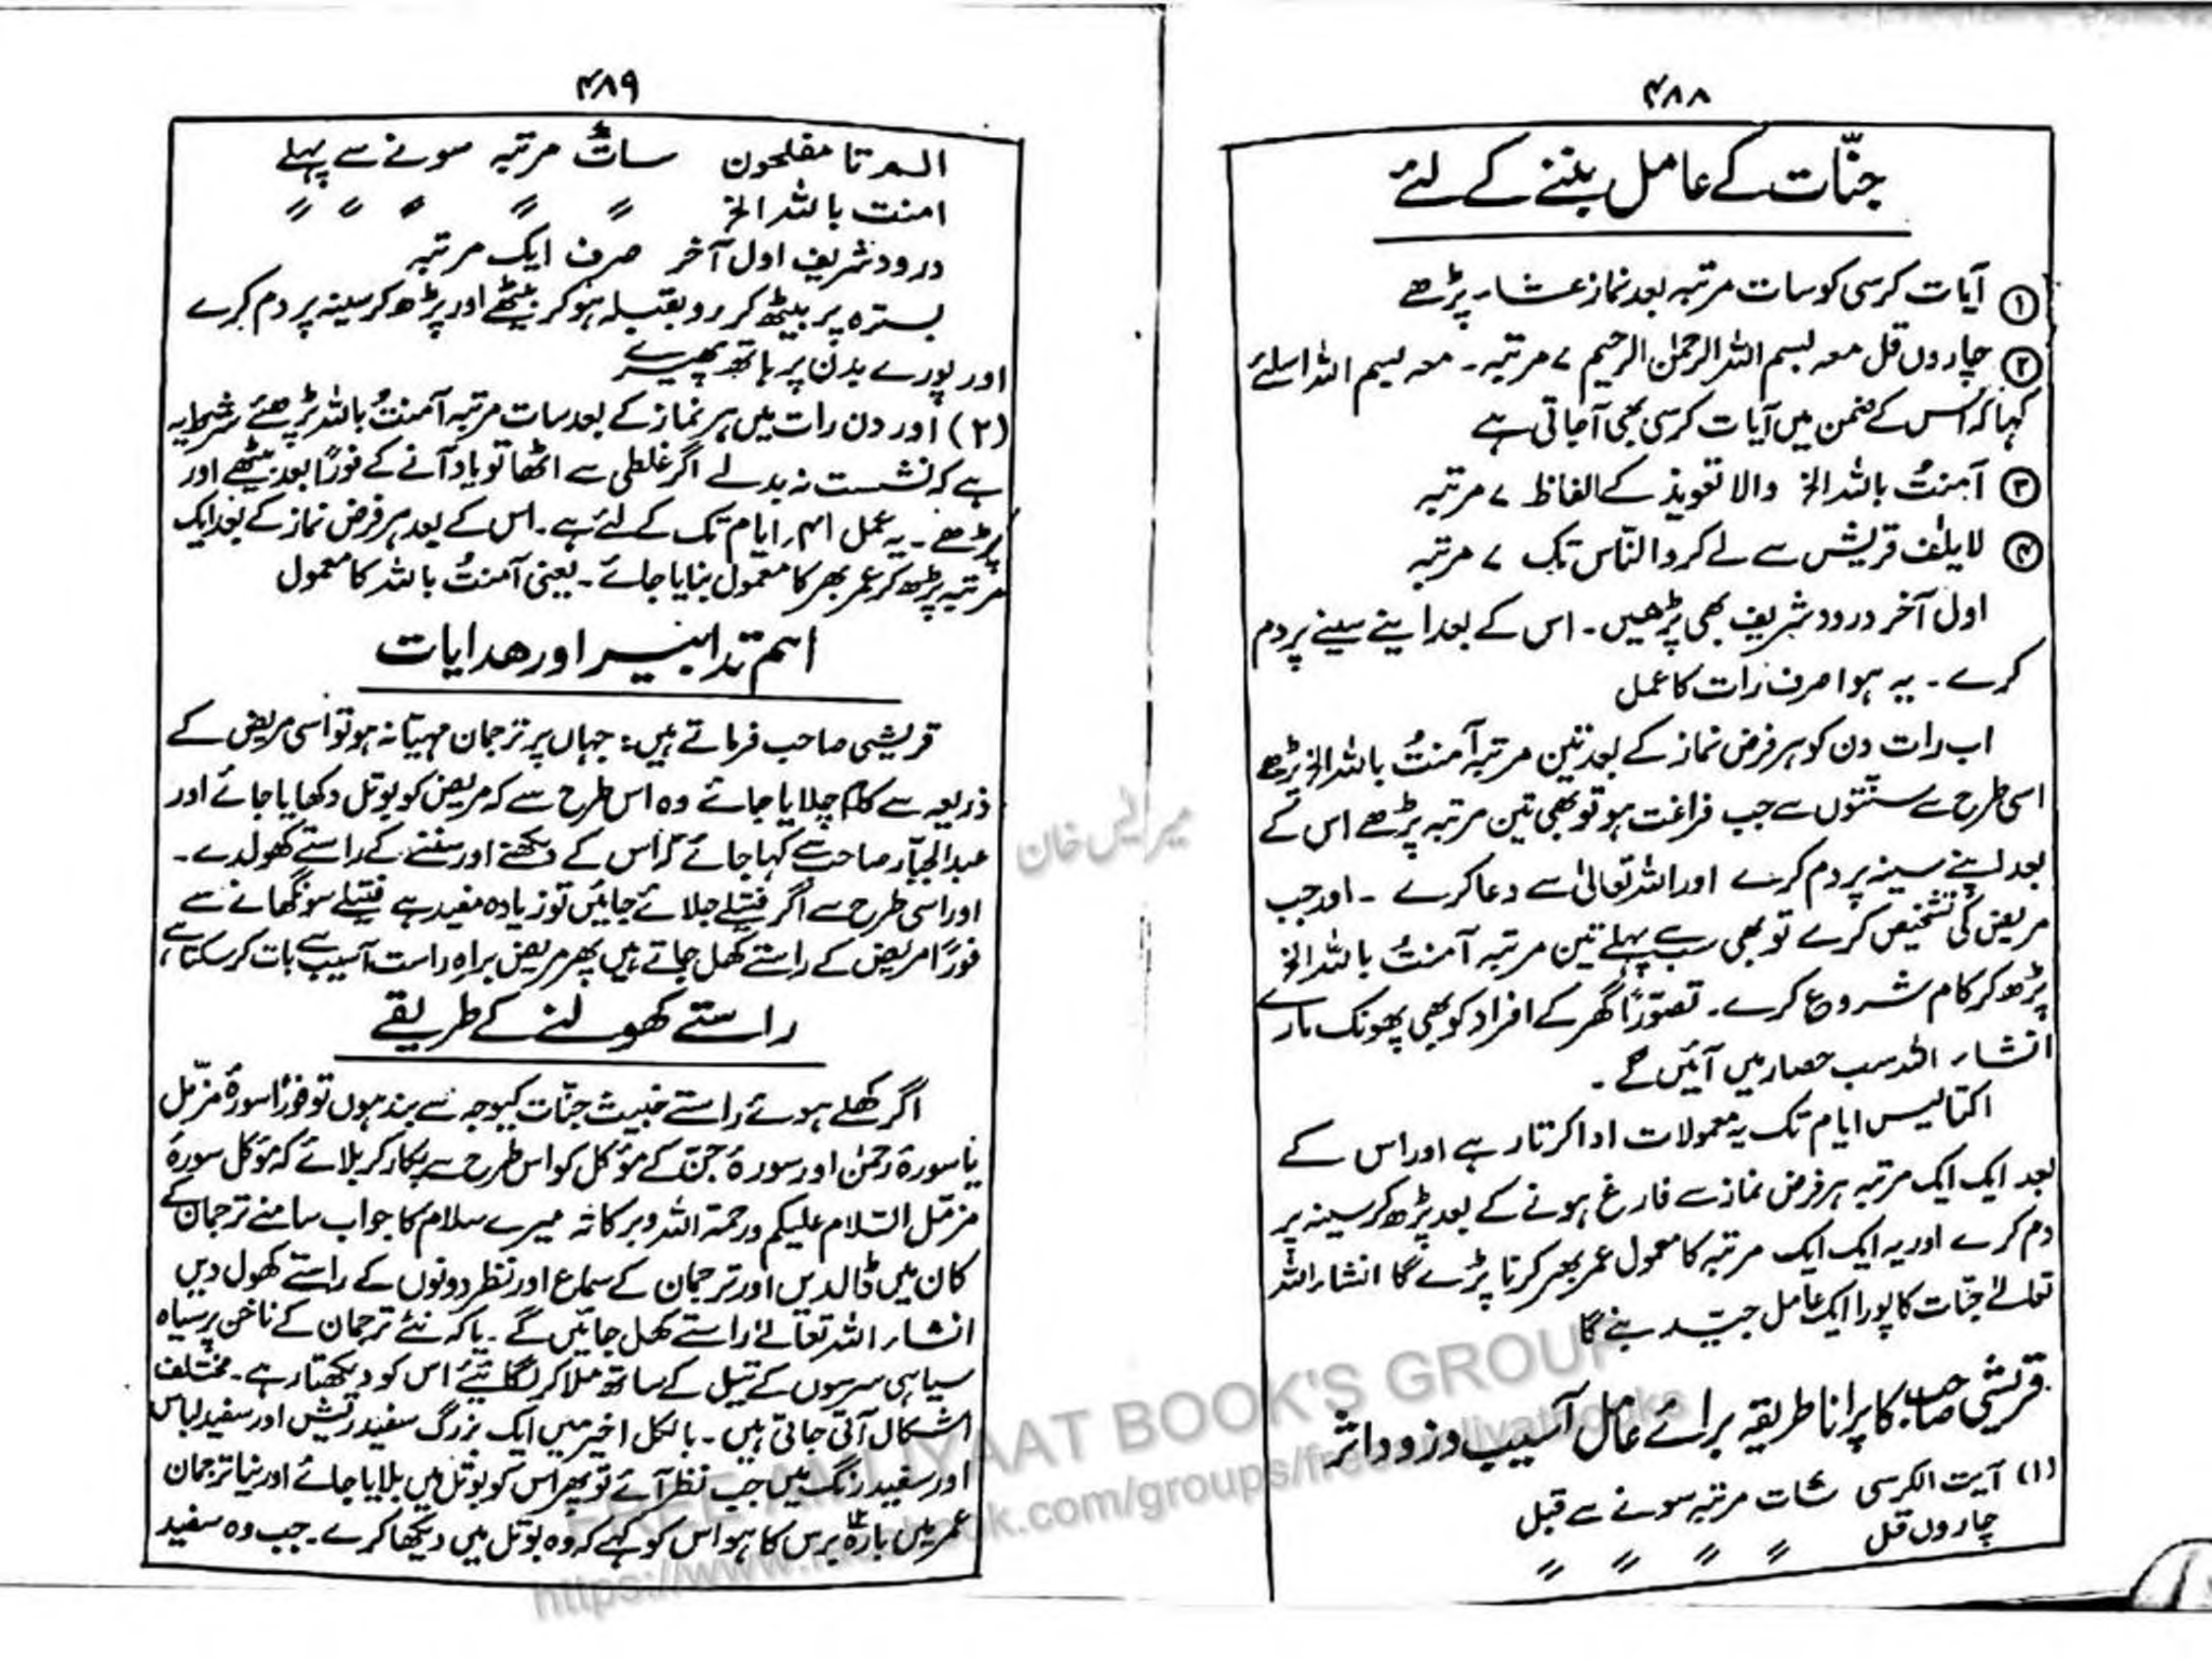 ۴۸۸
جنّات کے عامل بننے کے لئے
① آیات کرسی کو سات مرتبہ بعد نماز عشاء پڑھے
② چاروں قل معہ بسم اللہ الرحمٰن الرحیم ۷ مرتبہ۔ معہ بسم اللہ اسلئے
کہا کہ اس کے ضمن میں آیات کرسی بھی آجاتی ہے
③ آمنتُ باللہ الخ والا تعویذ کے الفاظ ۷ مرتبہ
④ لایلٰف قریش سے لے کر والنّاس تک ۷ مرتبہ
اول آخر درود شریف بھی پڑھیں۔ اس کے بعد اپنے سینے پر دم
کرے۔ یہ ہوا صرف رات کا عمل
اب رات دن کو ہر فرض نماز کے بعد تین مرتبہ آمنتُ باللہ الخ پڑھے
اسی طرح سے سنّتوں سے جب فراغت ہو تو بھی تین مرتبہ پڑھے اس کے
بعد اپنے سینہ پر دم کرے اور اللہ تعالیٰ سے دعا کرے ۔ اور جب
مریض کی تشخیص کرے تو بھی سب سے پہلے تین مرتبہ آمنتُ باللہ الخ
پڑھ کر کام شروع کرے۔ تصوّرًا گھر کے افراد کو بھی پھونک مارے
انشاء اللہ سب حصار میں آئیں گے ۔
اکتالیس ایام تک یہ معمولات ادا کرتا رہے اور اس کے
بعد ایک ایک مرتبہ ہر فرض نماز سے فارغ ہونے کے بعد پڑھ کر سینہ پر
دم کرے اور یہ ایک ایک مرتبہ کا معمول عمر بھر کرنا پڑے گا انشاء اللہ
تعالےٰ جنّات کا پورا ایک عامل جیّد بنے گا
قریشی صاحب کا پرانا طریقہ برائے عامل آسیب وزود اثر
(۱) آیت الکرسی سات مرتبہ سونے سے قبل
چاروں قل 〃 〃 〃 〃
۴۸۹
الم تا مفلحون سات مرتبہ سونے سے پہلے
امنت باللہ الخ 〃 〃 〃 〃 〃
درود شریف اول آخر صرف ایک مرتبہ
بسترہ پر بیٹھ کر رو بقبلہ ہو کر بیٹھے اور پڑھ کر سینہ پر دم کرے
اور پورے بدن پر ہاتھ پھیرے
(۲) اور دن رات میں ہر نماز کے بعد سات مرتبہ آمنتُ باللہ پڑھئے شرط یہ
ہے کہ نشست نہ بدلے اگر غلطی سے اٹھا تو یاد آنے کے فورًا بعد بیٹھے اور
پڑھے۔ یہ عمل ۴۱ ایام تک کے لئے ہے۔ اس کے بعد ہر فرض نماز کے بعد ایک
مرتبہ پڑھ کر عمر بھر کا معمول بنایا جائے۔ یعنی آمنتُ باللہ کا معمول
اہم تدابیر اور ھدایات
قریشی صاحب فرماتے ہیں: جہاں پر ترجمان مہیّا نہ ہو تو اسی مریض کے
ذریعہ سے کام چلایا جائے وہ اس طرح سے کہ مریض کو بوتل دکھایا جائے اور
عبدالجبّار صاحب سے کہا جائے کہ اس کے دیکھنے اور سننے کے راستے کھولدے۔
اور اسی طرح سے اگر فتیلے جلائے جائیں تو زیادہ مفید ہے فتیلے سونگھانے سے
فورًا مریض کے راستے کھل جاتے ہیں پھر مریض براہ راست آسیب سے بات کرسکتا ہے،
راستے کھولنے کے طریقے
اگر کھلے ہوئے راستے خبیث جنّات کیوجہ سے بند ہوں تو فورًا سورۂ مزّمل
یا سورۂ رحمٰن اور سورۂ جنّ کے مؤکل کو اس طرح سے پکار کر بلائے کہ مؤکل سورۂ
مزمّل السّلام علیکم ورحمۃ اللہ وبرکاتہ میرے سلام کا جواب سامنے ترجمان کے
کان میں ڈالدیں اور ترجمان کے سماع اور نظر دونوں کے راستے کھول دیں
انشاء اللہ تعالےٰ راستے کھل جائیں گے۔ یا کہ نئے ترجمان کے ناخن پر سیاہ
سیاہی سرسوں کے تیل کے ساتھ ملا کر لگائیے اس کو دیکھتا رہے۔ مختلف
اشکال آتی جاتی ہیں۔ بالکل اخیر میں ایک بزرگ سفید ریش اور سفید لباس
اور سفید رنگ میں جب نظر آئے تو پھر اس کو بوتل میں بلایا جائے اور نیا ترجمان
عمر میں بارہ ۱۲ برس کا ہو اس کو کہے کہ وہ بوتل میں دیکھا کرے۔ جب وہ سفید
FREE AMLIYAAT BOOK'S GROUP
https://www.facebook.com/groups/freeamliyatbooks